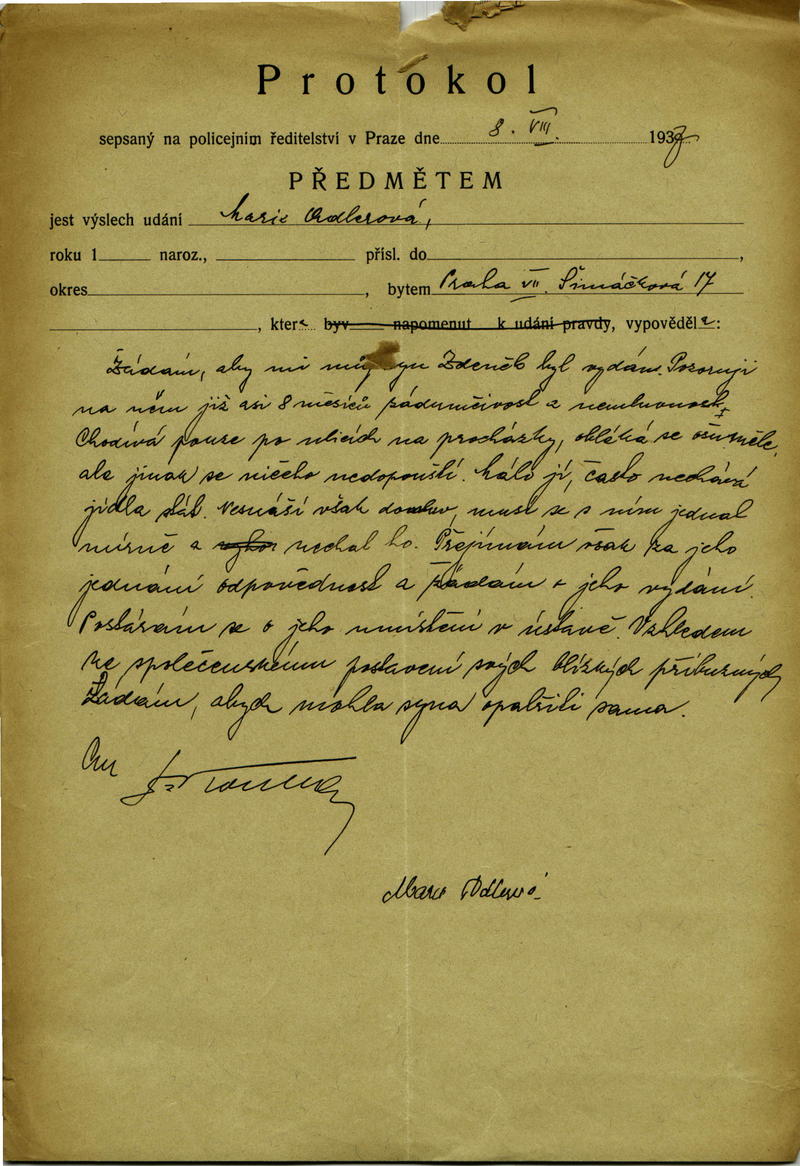 Protokol
sepsaný na policejním ředitelství v Praze dne 8. VIII. 1937
PŘEDMĚTEM
jest výslech udání Marie Adlerová,
roku 1 naroz., přísl. do ,
okres , bytem Praha VII. Šimáčková 17
, která byv napomenut k udání pravdy, vypověděla:
Žádám, aby mi můj syn Zdeněk byl vydán. Pozoruji
na něm již asi 8 měsíců zádumčivost a nemluvnost.
Chodívá pouze po ulicích na procházky, obléká se ošuměle,
ale jinak se ničeho nedopouští. Málo jí, často nechává
jídla stát. Nesnáší však domluv, musí se s ním jednat
mírně a nechat ho. Přejímám však za jeho
jednání odpovědnost a žádám o jeho vydání.
Postarám se o jeho umístění v ústavě. Vzhledem
ke společenskému postavení svých blízkých příbuzných
Žádám, abych mohla syna opatřiti sama.
Marie Adlerová